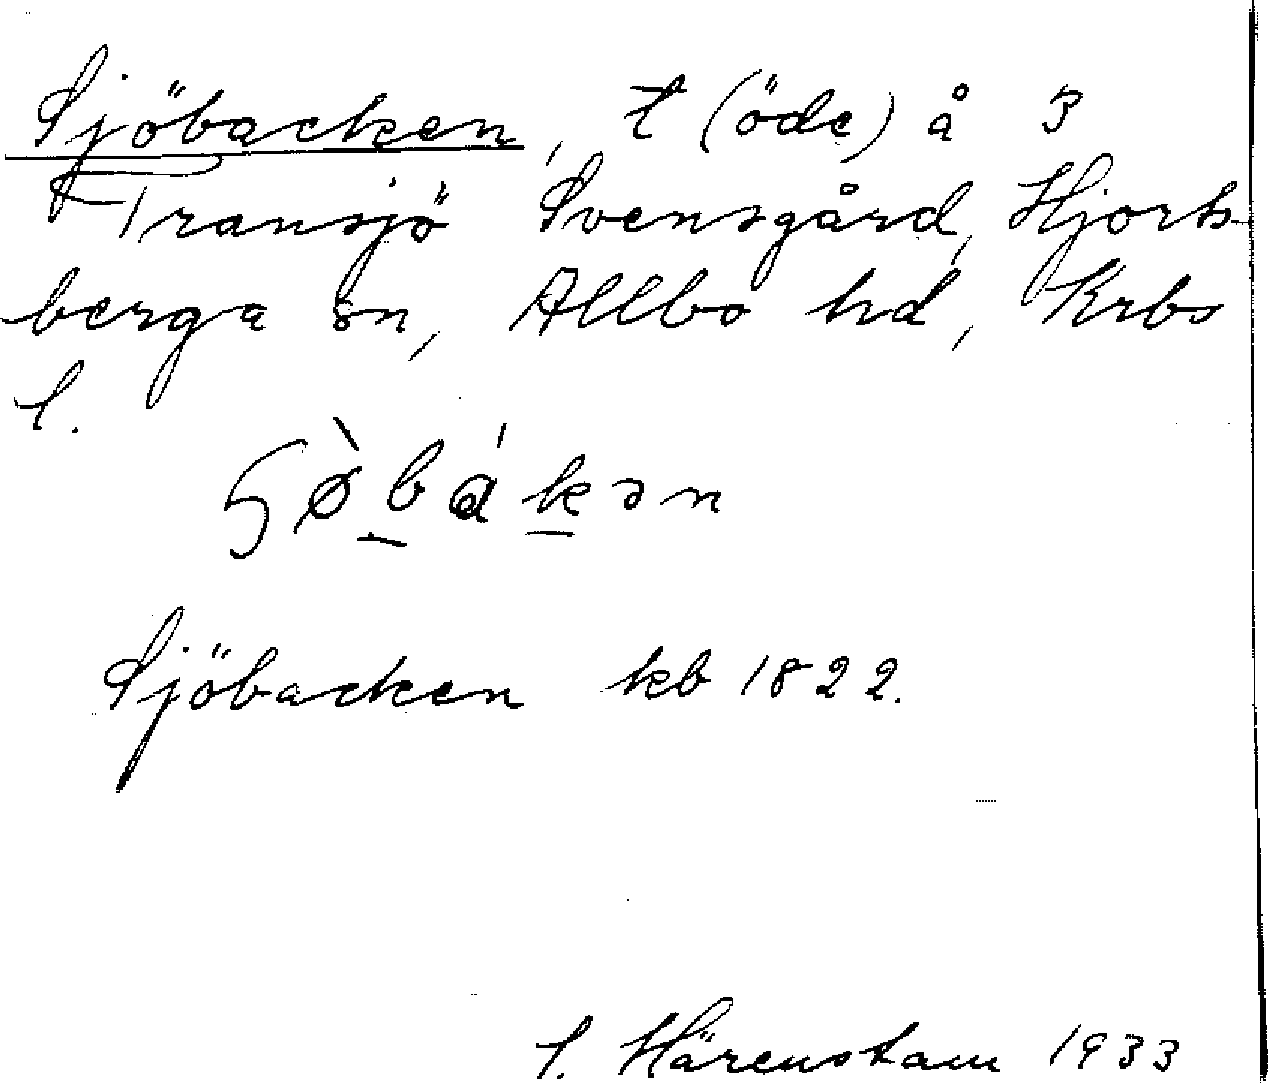 Sjöbacken, t (öde) å 3
Transjö Svensgård, Hjorts-
berga sn, Allbo hd, Krbs
l.
ʂø̀bákən
Sjöbacken kb 1822.
S. Härenstam 1933